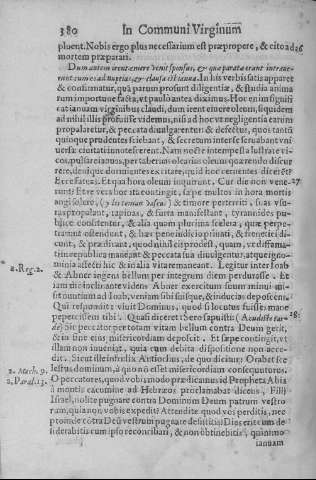 380 In Communi Virginum
pluent. Nobis ergo plus necessarium est præpropere, & cito ad 26
mortem præparari.
Dum autem irent emere venit sponsus, & quæ paratæ erant intrave-
runt cum eo ad nuptias, & clausa est ianua. In his verbis satis apparet
& confirmatur, quã parum prosunt diligentiæ, & studia anima
rum importune facta, et paulo antea diximus. Hoc enim signifi
cat ianuam virginibus claudi, dum irent emere oleum, siquidem
ad nihil illis profuisse videmus, nisi ad hoc vt negligentia earum
propalaretur, & peccata divulgarentur: & defectus, quos tantũ
quinque prudentes sciebant, & secretum inter se servabant vni
versæ civitati innotescerent. Nam nocte intempesta lustrate vi
cos, pulsare ianuos, per tabernas olearias oleum quærendo discur
rere, denique dormientes excitare, quid hoc
Ecce fatuæ. Et qua hora oleum inquirunt. Cur die non vene- 27
runt? Etre vera hoc ita contingit, sæpe multos in hora mortis
angi solere, & timore perterriti, suas vsu-
ras propalant, rapinas, & furta manifestant, tyrannides pu-
blice consitentur, & alia quam plurima scelera, quæ perpe-
traruntostendunt, & hæc perinde isopinati, & frenetici di-
cunt, & prædicant, quod nihil eis prodest, quam, vt diffama-
ti in republica maneant & peccata sua divulgentur, atque igno-
minia affecti hic & in alia vita remaneant. Legitur inter Ioab
& Abner ingens bellum per integrum diem perdurasse. Et
iam die inclinante videns Abner exercitum suum minui mi-
sit nuntium ad Ioab, veniam sibi suisque, & inducias deposcens.
Qui respondit: vivit Dominus, quod si locutus fuisses mane
pepercissem tibi. Quasi diceret: Sero sapuisti (
de) Sic peccator per totam vitam bellum contra Deum gerit, 28
& in fine eius misericordiam deposcit. Et sæpe contingit, vt
illam non inveniat, quia cum debita dispositione non acce-
dit. Sicut ille infælix Antiochus, de quo dicitur: Orabat sce
lestus dominum, à quo nõ esset misericordiam consequuturus.
O peccatores, quod vobis modo prædicamus id Propheta Abia
à montis cacumine ad Hebræos proclamabat dicens, Filij
Israel, nolite pugnare contra Dominum Deum patrum vestro
ram, quia non vobis expedit: Attendite quod vos perditis, nec
ptoinde cõtra Deũ vestrum pugnare desistitis: Dies erit cum de
siderabitis cum ipso reconciliari, & non obtinebitis, quinimo
ianuam
2. Reg. 2.
2. Mach. 9.
2. Paral. 13.